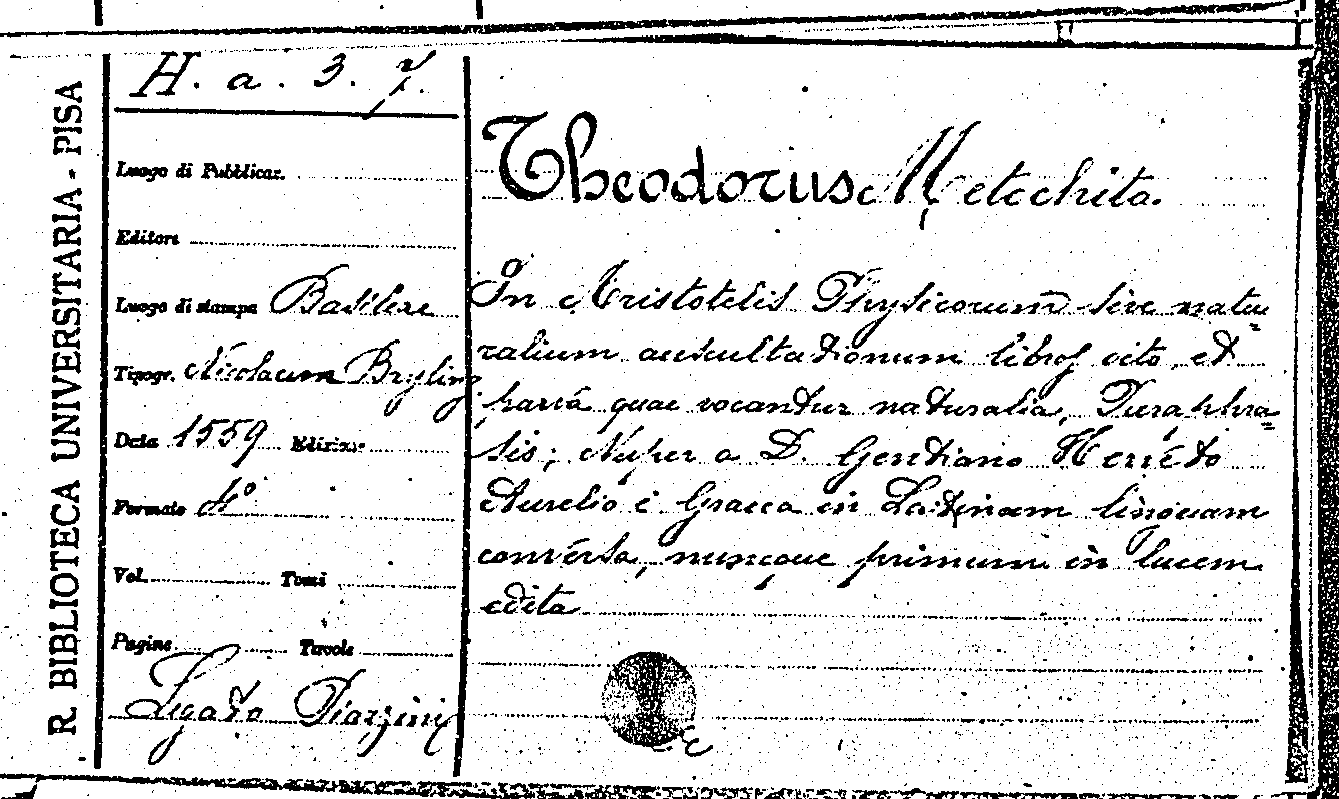 R. BIBLIOTECA UNIVERSITARIA - PISA
H. a. 3. 7.
Luogo di Pubblicaz.
Editore
Luogo di stampa Basileae
Tipogr. Nicolaum Bryling
Data 1559 Edizione
Formato 4°
Vol. Tomi
Pagine Tavole
Legato Piazzini
Theodorus Metochita.
In Aristotelis Physicorum sive natu=
ralium auscultationum libros octo, et
parva quae vocantur naturalia, Paraphra=
sis; Nuper a D. Gentiano Herveto
Aurelio è Graeca in Latinam linguam
conversa, nuncque primum in lucem
edita